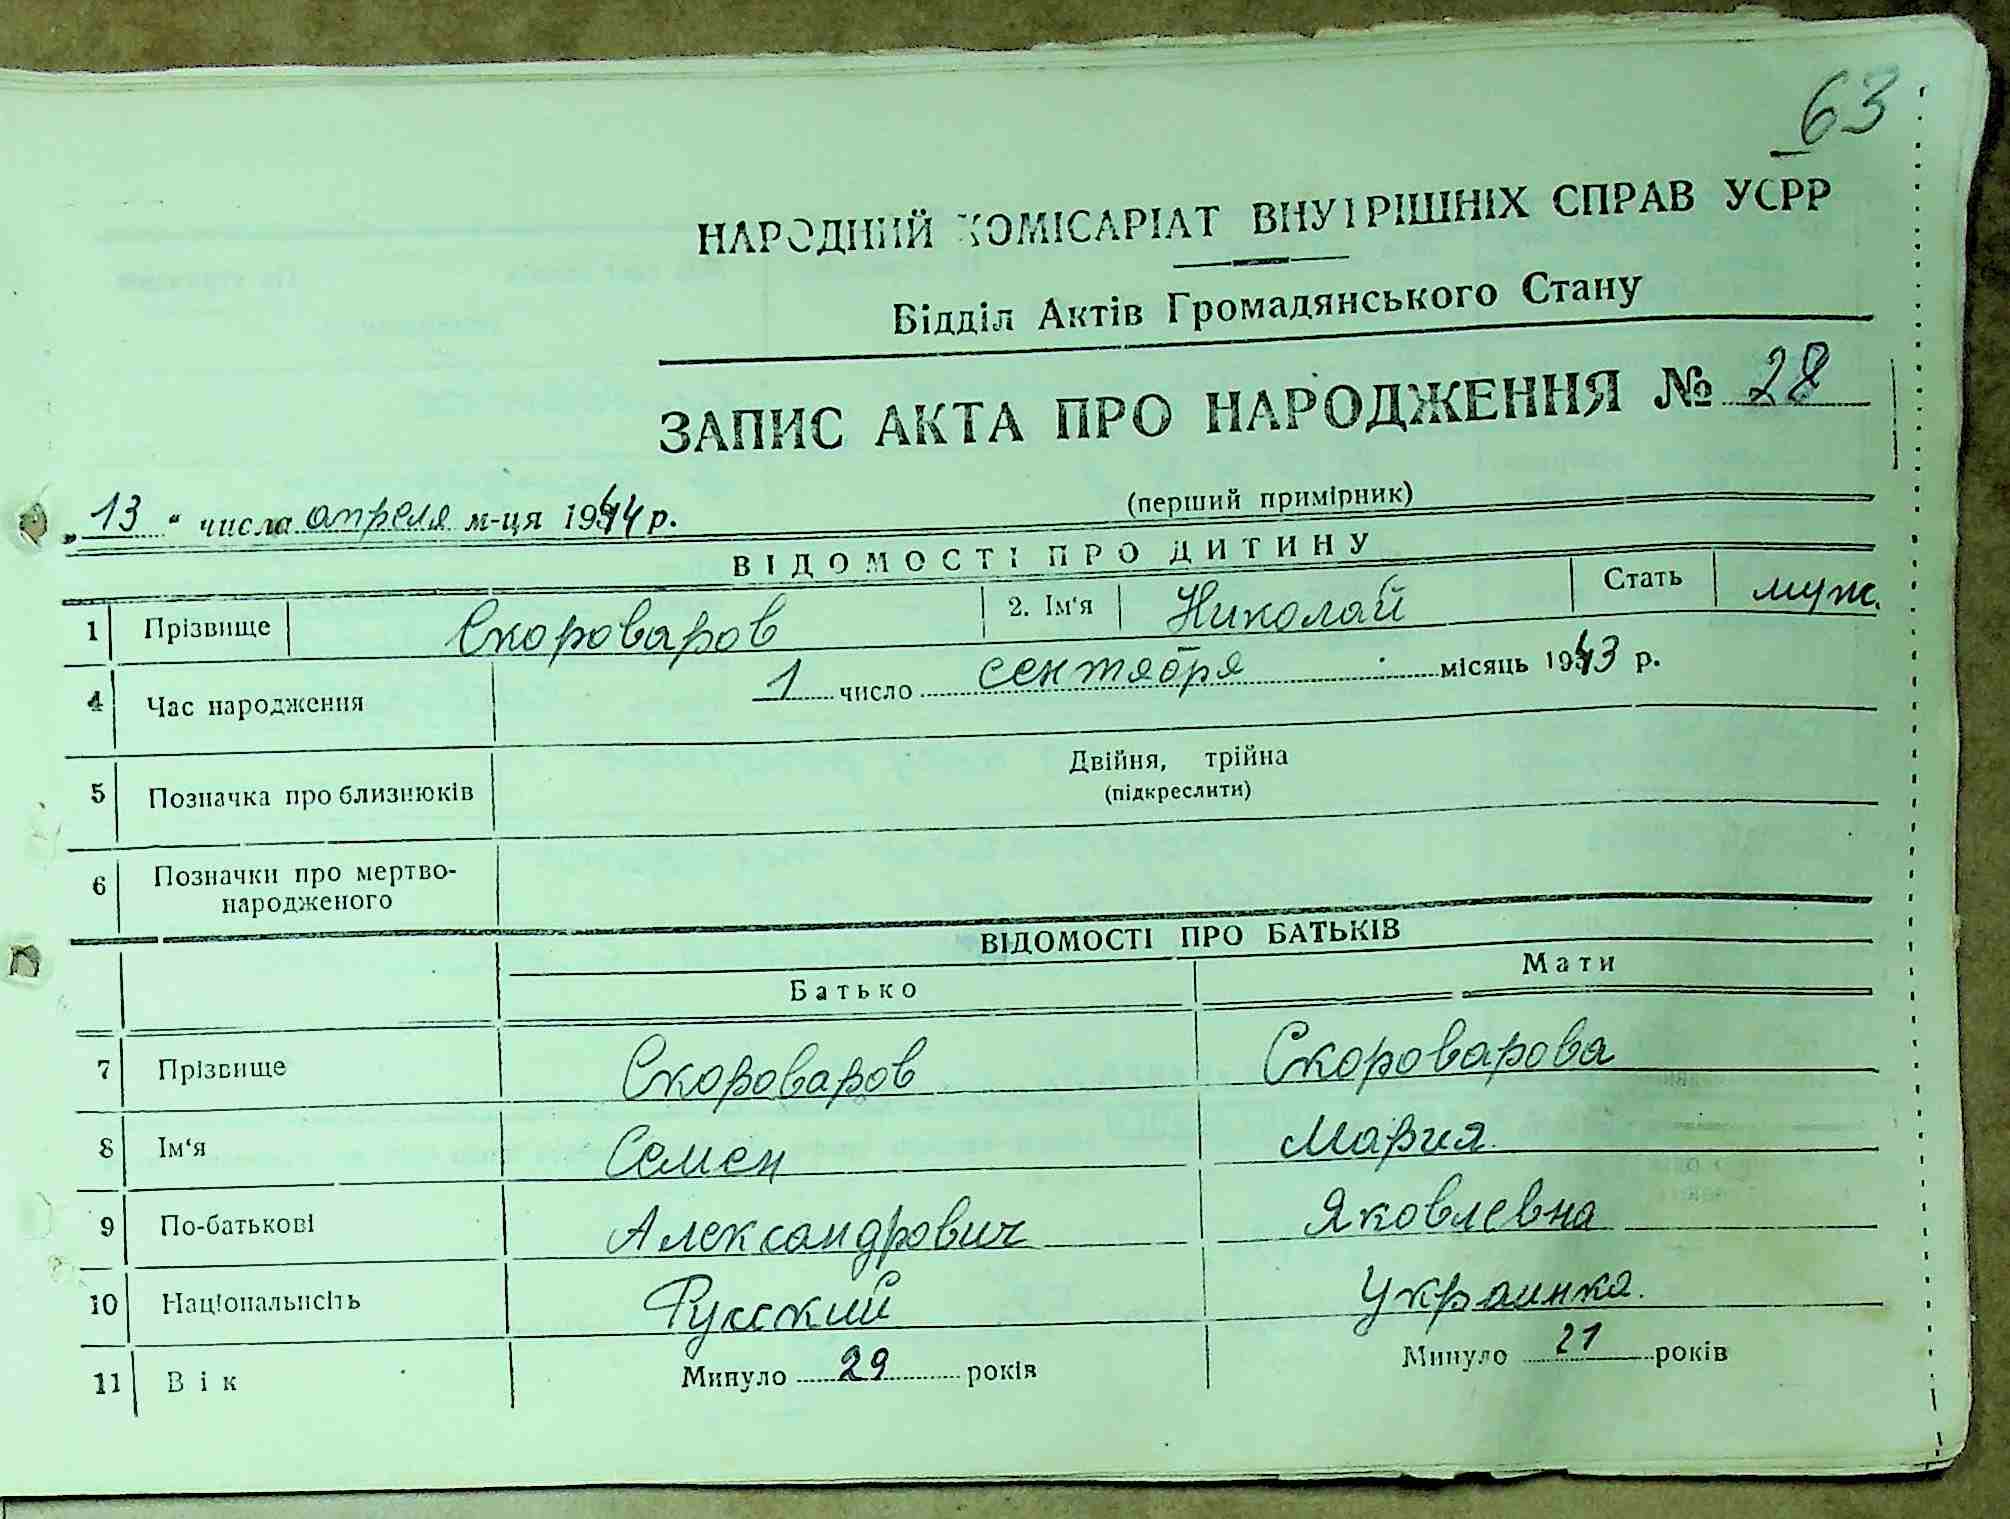 63
НАРОДНИЙ КОМІСАРІАТ ВНУТРІШНІХ СПРАВ УСРР
Відділ Актів Громадянського Стану
ЗАПИС АКТА ПРО НАРОДЖЕННЯ № 28
„13" числа апреля м-ця 1944 р.
(перший примірник)
ВІДОМОСТІ ПРО ДИТИНУ
1 Прізвище Скороваров 2. Ім'я Николай Стать муж.
4 Час народження 1 число сентября місяць 1943 р.
5 Позначка про близнюків Двійня, трійна
(підкреслити)
6 Позначки про мертво-
народженого
ВІДОМОСТІ ПРО БАТЬКІВ
Батько Мати
7 Прізвище Скороваров Скороварова
8 Ім'я Семен Мария
9 По-батькові Александрович Яковлевна
10 Національність Русский Украинка.
11 Вік Минуло 29 років Минуло 21 років